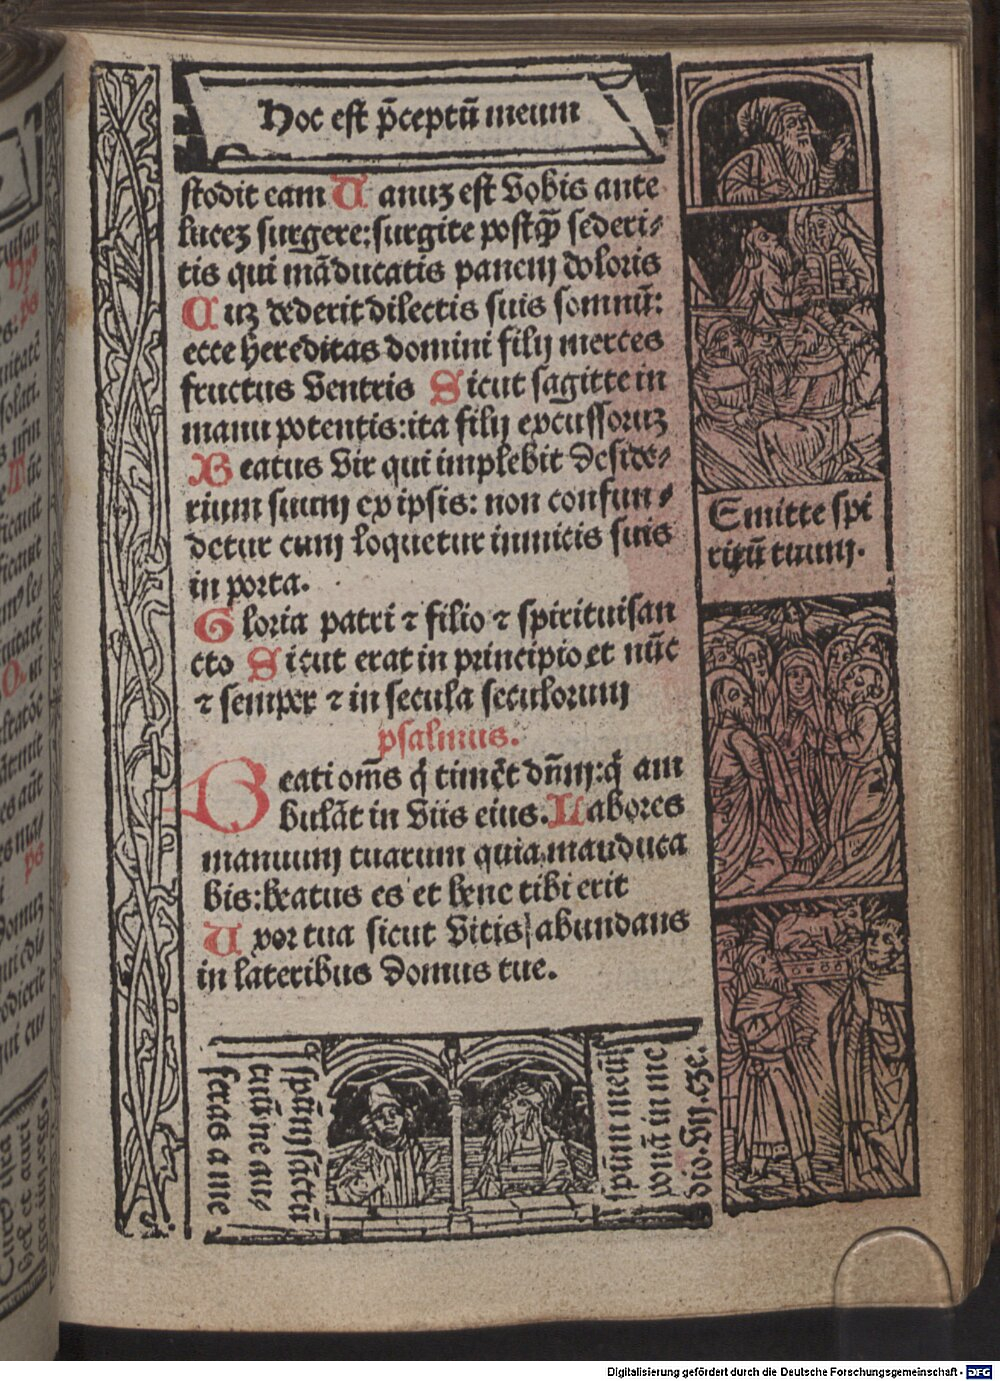 Hoc est p̄ceptū meum
stodit eam Uanuꝫ est vobis ante
luceꝫ surgere: surgite postꝙ̄ sederi⸗
tis qui māducatis panem doloris
Cuꝫ dederit dilectis suis somnū:
ecce hereditas domini filij merces
fructus ventris Sicut sagitte in
manu potentis: ita filij excussoruꝫ
Beatus vir qui implebit deside⸗
rium suum ex ipsis: non confun⸗
detur cum loquetur inimicis suis
in porta.
Gloria patri ⁊ filio ⁊ spirituisan
cto Sicut erat in principio et nūc
⁊ semper ⁊ in secula seculorum
psalmus.
Beati om̄s q̄ timēt dn̄m: q̄ am
bulāt in viis eius. Labores
manuum tuarum quia manduca
bis: beatus es et bene tibi erit
Uxor tua sicut vitis abundans
in lateribus domus tue.
Emitte spi
ritū tuum.
spūm sāctū
tuū ne au⸗
feras a me
spūm meū
ponā in me
dio. vij. eze.
Digitalisierung gefördert durch die Deutsche Forschungsgemeinschaft - DFG